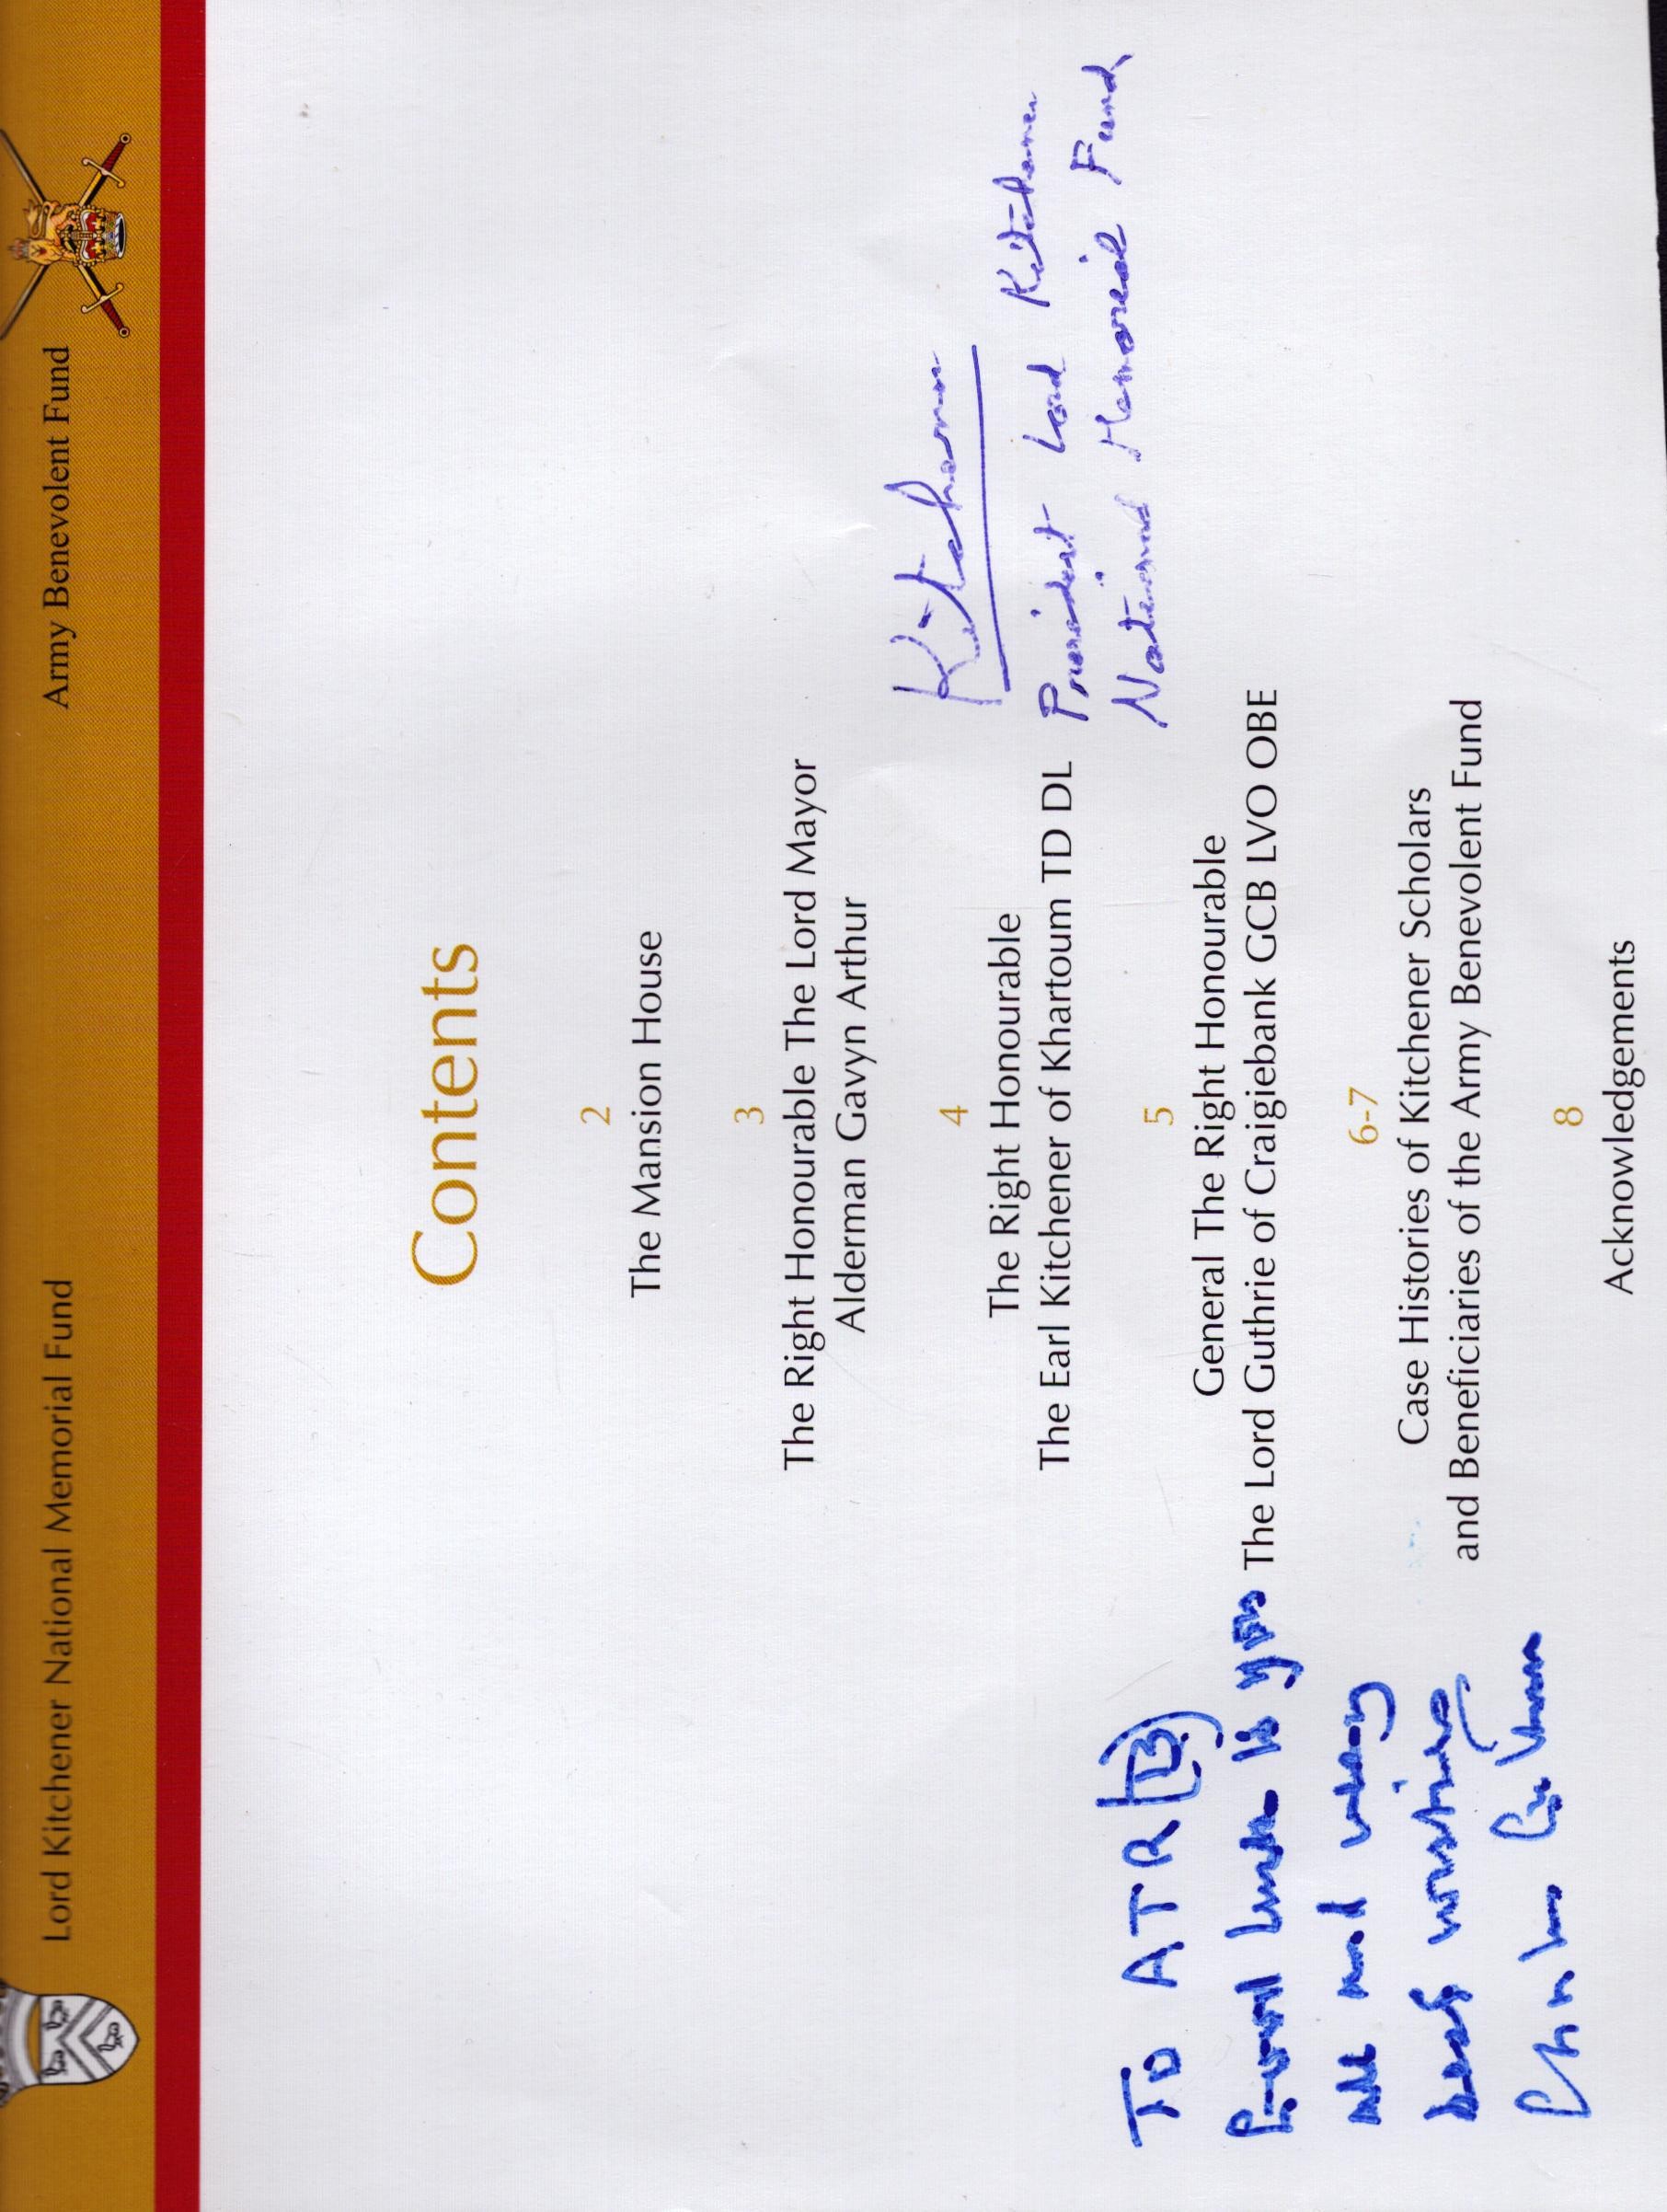 Lord Kitchener National Memorial Fund
Army Benevolent Fund
Contents
2
The Mansion House
3
The Right Honourable The Lord Mayor
Alderman Gavyn Arthur
4
The Right Honourable
The Earl Kitchener of Khartoum TD DL
Kitchener
President Lord Kitchener
National Memorial Fund
5
General The Right Honourable
The Lord Guthrie of Craigiebank GCB LVO OBE
6-7
Case Histories of Kitchener Scholars
and Beneficiaries of the Army Benevolent Fund
8
Acknowledgements
TO ATR
luck to you
all and very
best wishes